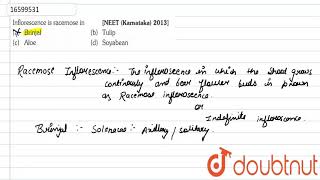 16599531
Inflorescence is racemose in [NEET (Karnataka) 2013]
(a) Brinjal (b) Tulip
(c) Aloe (d) Soyabean
Racemose Inflorescence:- The inflorescence in which the shoot grows
continuously and bear flower buds is known
as Racemose inflorescence.
or
Indefinite inflorescence.
Brinjal:- Solanaceae:- Axillary/solitary.
doubtnut